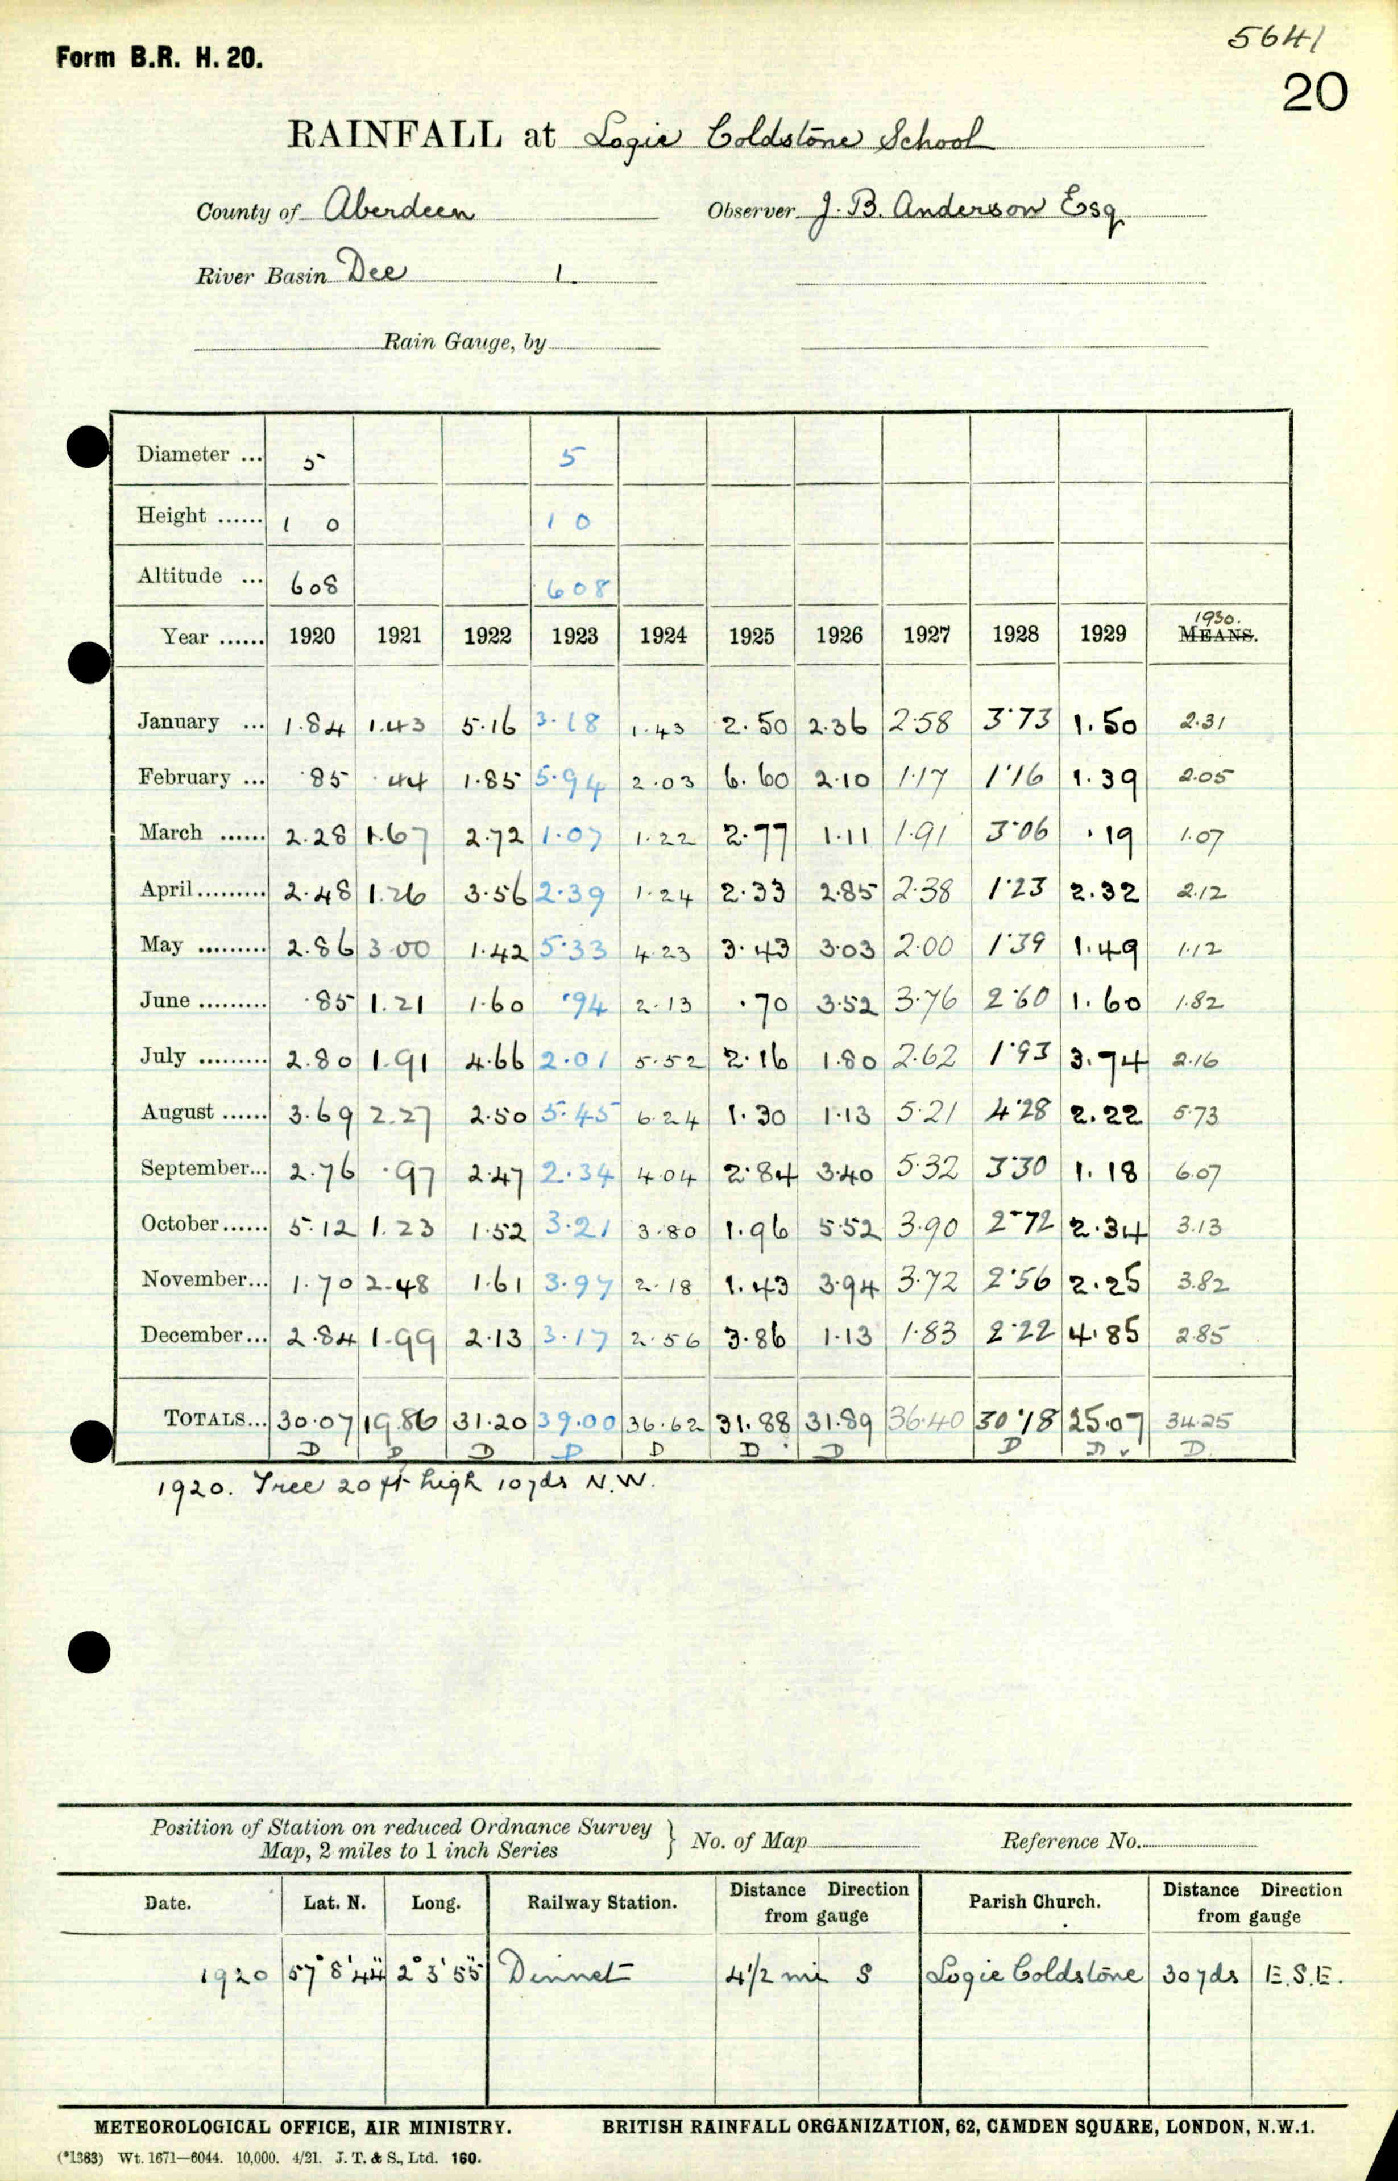 5641
Form B.R. H. 20.
20
RAINFALL at Logie Coldstone School
County of Aberdeen Observer J. B. Anderson Esq
River Basin Dee 1
Rain Gauge, by
Diameter ... 5 5
Height ...... 1 0 1 0
Altitude ... 608 608
1930.
Year ...... 1920 1921 1922 1923 1924 1925 1926 1927 1928 1929 MEANS.
January ... 1.84 1.43 5.16 3.18 1.43 2.50 2.36 2.58 3.73 1.50 2.31
February ... .85 .44 1.85 5.94 2.03 6.60 2.10 1.17 1.16 1.39 2.05
March ...... 2.28 1.67 2.72 1.07 1.22 2.77 1.11 1.91 3.06 .19 1.07
April ......... 2.48 1.26 3.56 2.39 1.24 2.33 2.85 2.38 1.23 2.32 2.12
May ......... 2.86 3.00 1.42 5.33 4.23 3.43 3.03 2.00 1.39 1.49 1.12
June ......... .85 1.21 1.60 .94 2.13 .70 3.52 3.76 2.60 1.60 1.82
July ......... 2.80 1.91 4.66 2.01 5.52 2.16 1.80 2.62 1.93 3.74 2.16
August ...... 3.69 2.27 2.50 5.45 6.24 1.30 1.13 5.21 4.28 2.22 5.73
September... 2.76 .97 2.47 2.34 4.04 2.84 3.40 5.32 3.30 1.18 6.07
October...... 5.12 1.23 1.52 3.21 3.80 1.96 5.52 3.90 2.72 2.34 3.13
November... 1.70 2.48 1.61 3.97 2.18 1.43 3.94 3.72 2.56 2.25 3.82
December... 2.84 1.99 2.13 3.17 2.56 3.86 1.13 1.83 2.22 4.85 2.85
TOTALS... 30.07 19.86 31.20 39.00 36.62 31.88 31.89 36.40 30.18 25.07 34.25
D D D D D D D D D v D.
1920. Tree 20 ft high 10 yds N.W.
Position of Station on reduced Ordnance Survey
Map, 2 miles to 1 inch Series } No. of Map Reference No.
Date. Lat. N. Long. Railway Station. Distance Direction from gauge Parish Church. Distance Direction from gauge
1920 57° 8' 44" 2° 3' 55" Dinnet 4½ mi S Logie Coldstone 30 yds E.S.E.
METEOROLOGICAL OFFICE, AIR MINISTRY. BRITISH RAINFALL ORGANIZATION, 62, CAMDEN SQUARE, LONDON, N.W.1.
(*1383) Wt. 1671—6044. 10,000. 4/21. J. T. & S., Ltd. 160.